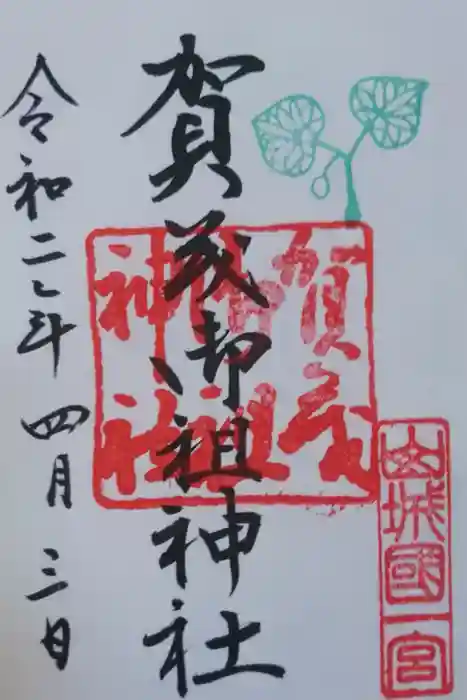 山城國一宮
賀茂御祖神社
賀茂御祖神社
令和二年四月三日